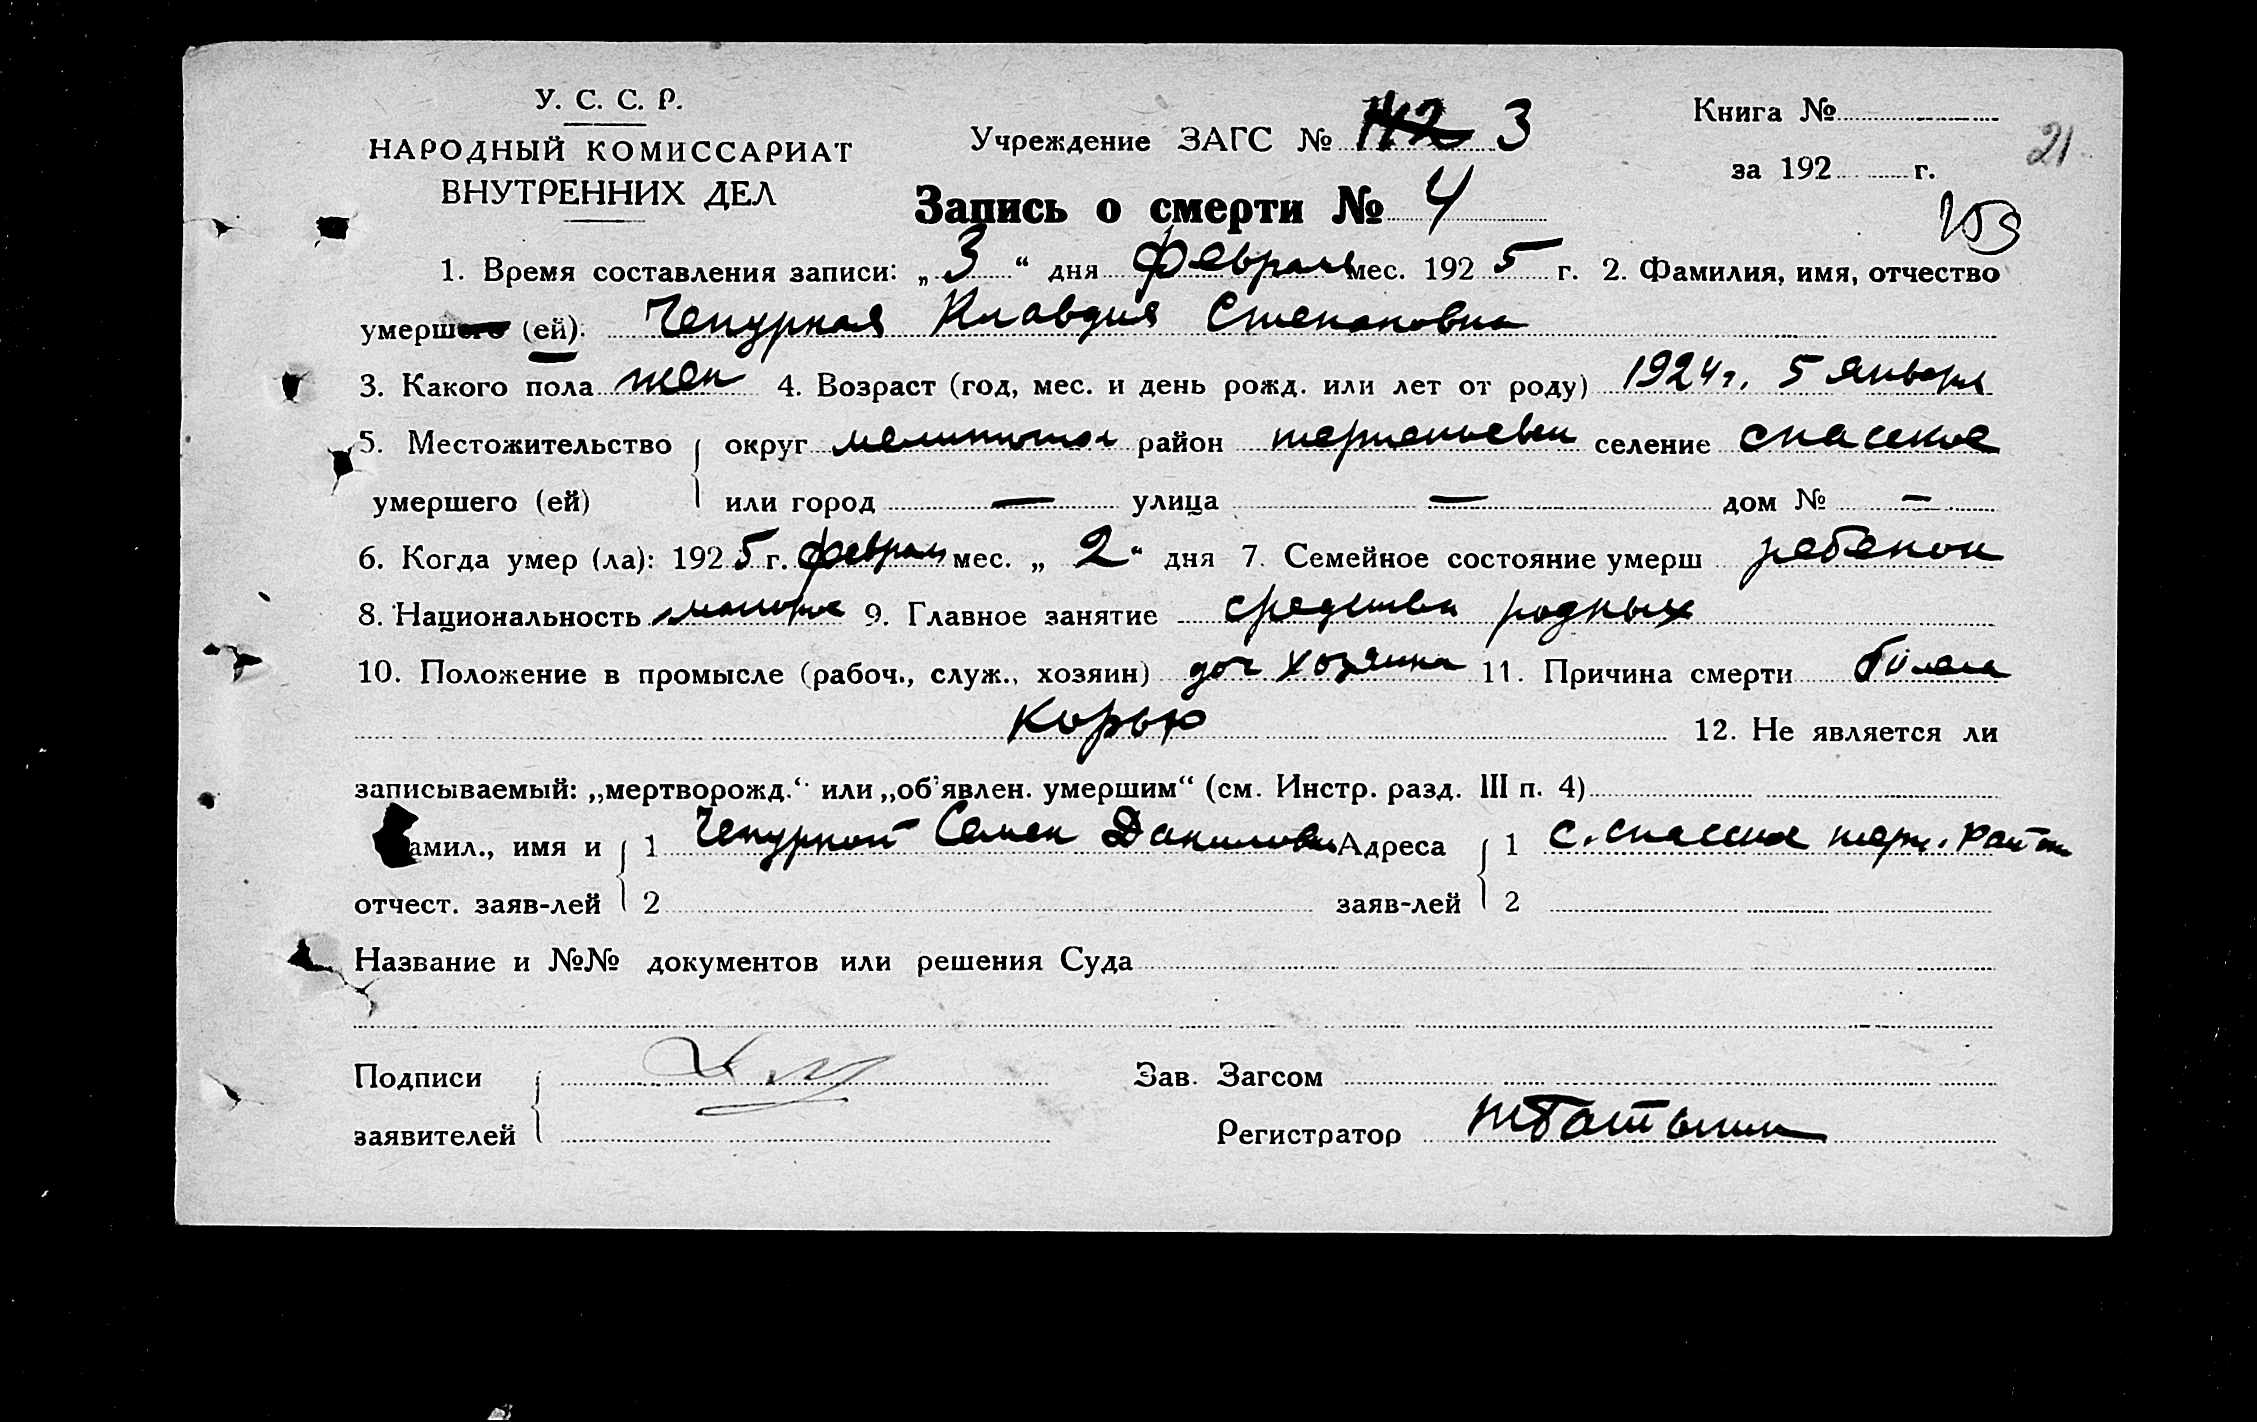 У. С. С. Р.
НАРОДНЫЙ КОМИССАРИАТ
ВНУТРЕННИХ ДЕЛ
Учреждение ЗАГС № 142 3
Книга №
за 192 г.
21
Запись о смерти № 4
1. Время составления записи: „ 3 “ дня февраля мес. 192 5 г. 2. Фамилия, имя, отчество
умершего (ей): Чепурная Клавдия Степановна
3. Какого пола жен 4. Возраст (год, мес. и день рожд. или лет от роду) 1924 г. 5 января
5. Местожительство умершего (ей)
округ мелитопол район терпеньевск селение спаское
или город — улица — дом № —
6. Когда умер (ла): 192 5 г. февраль мес. „ 2 “ дня 7. Семейное состояние умерш ребенок
8. Национальность 9. Главное занятие средства родных
10. Положение в промысле (рабоч., служ., хозяин) доч хозяина 11. Причина смерти болела
корью 12. Не является ли
записываемый: „мертворожд.“ или „об'явлен. умершим“ (см. Инстр. разд. III п. 4)
амил., имя и отчест. заяв-лей
1 Чепурной Семен Данилови
2
Адреса заяв-лей
1 с. спасское терп. район
2
Название и №№ документов или решения Суда
Подписи заявителей
Зав. Загсом
Регистратор